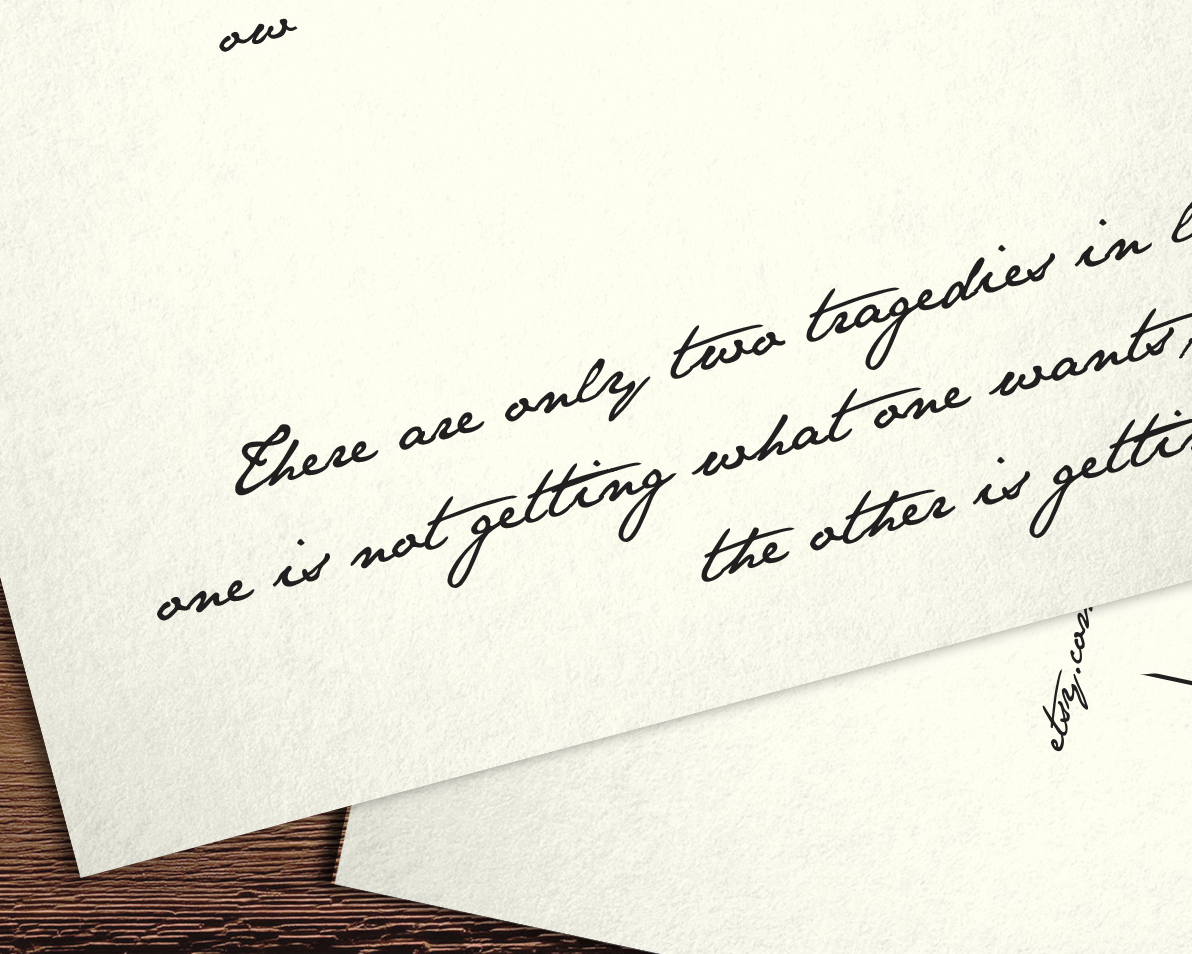 ow
There are only two tragedies in l
one is not getting what one wants,
the other is getti
etsy.com